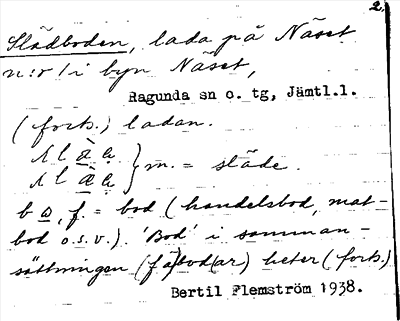 2.
Slädboden, lada på Näset
n:r 1 i byn Näset,
Ragunda sn o. tg, Jämtl.l.
(forts.) ladan.
m. = släde.
b = bod (handelsbod, mat-
bod o.s.v.). 'Bod' i samman-
sättningen (få)bod(ar) heter (forts.)
Bertil Flemström 1938.